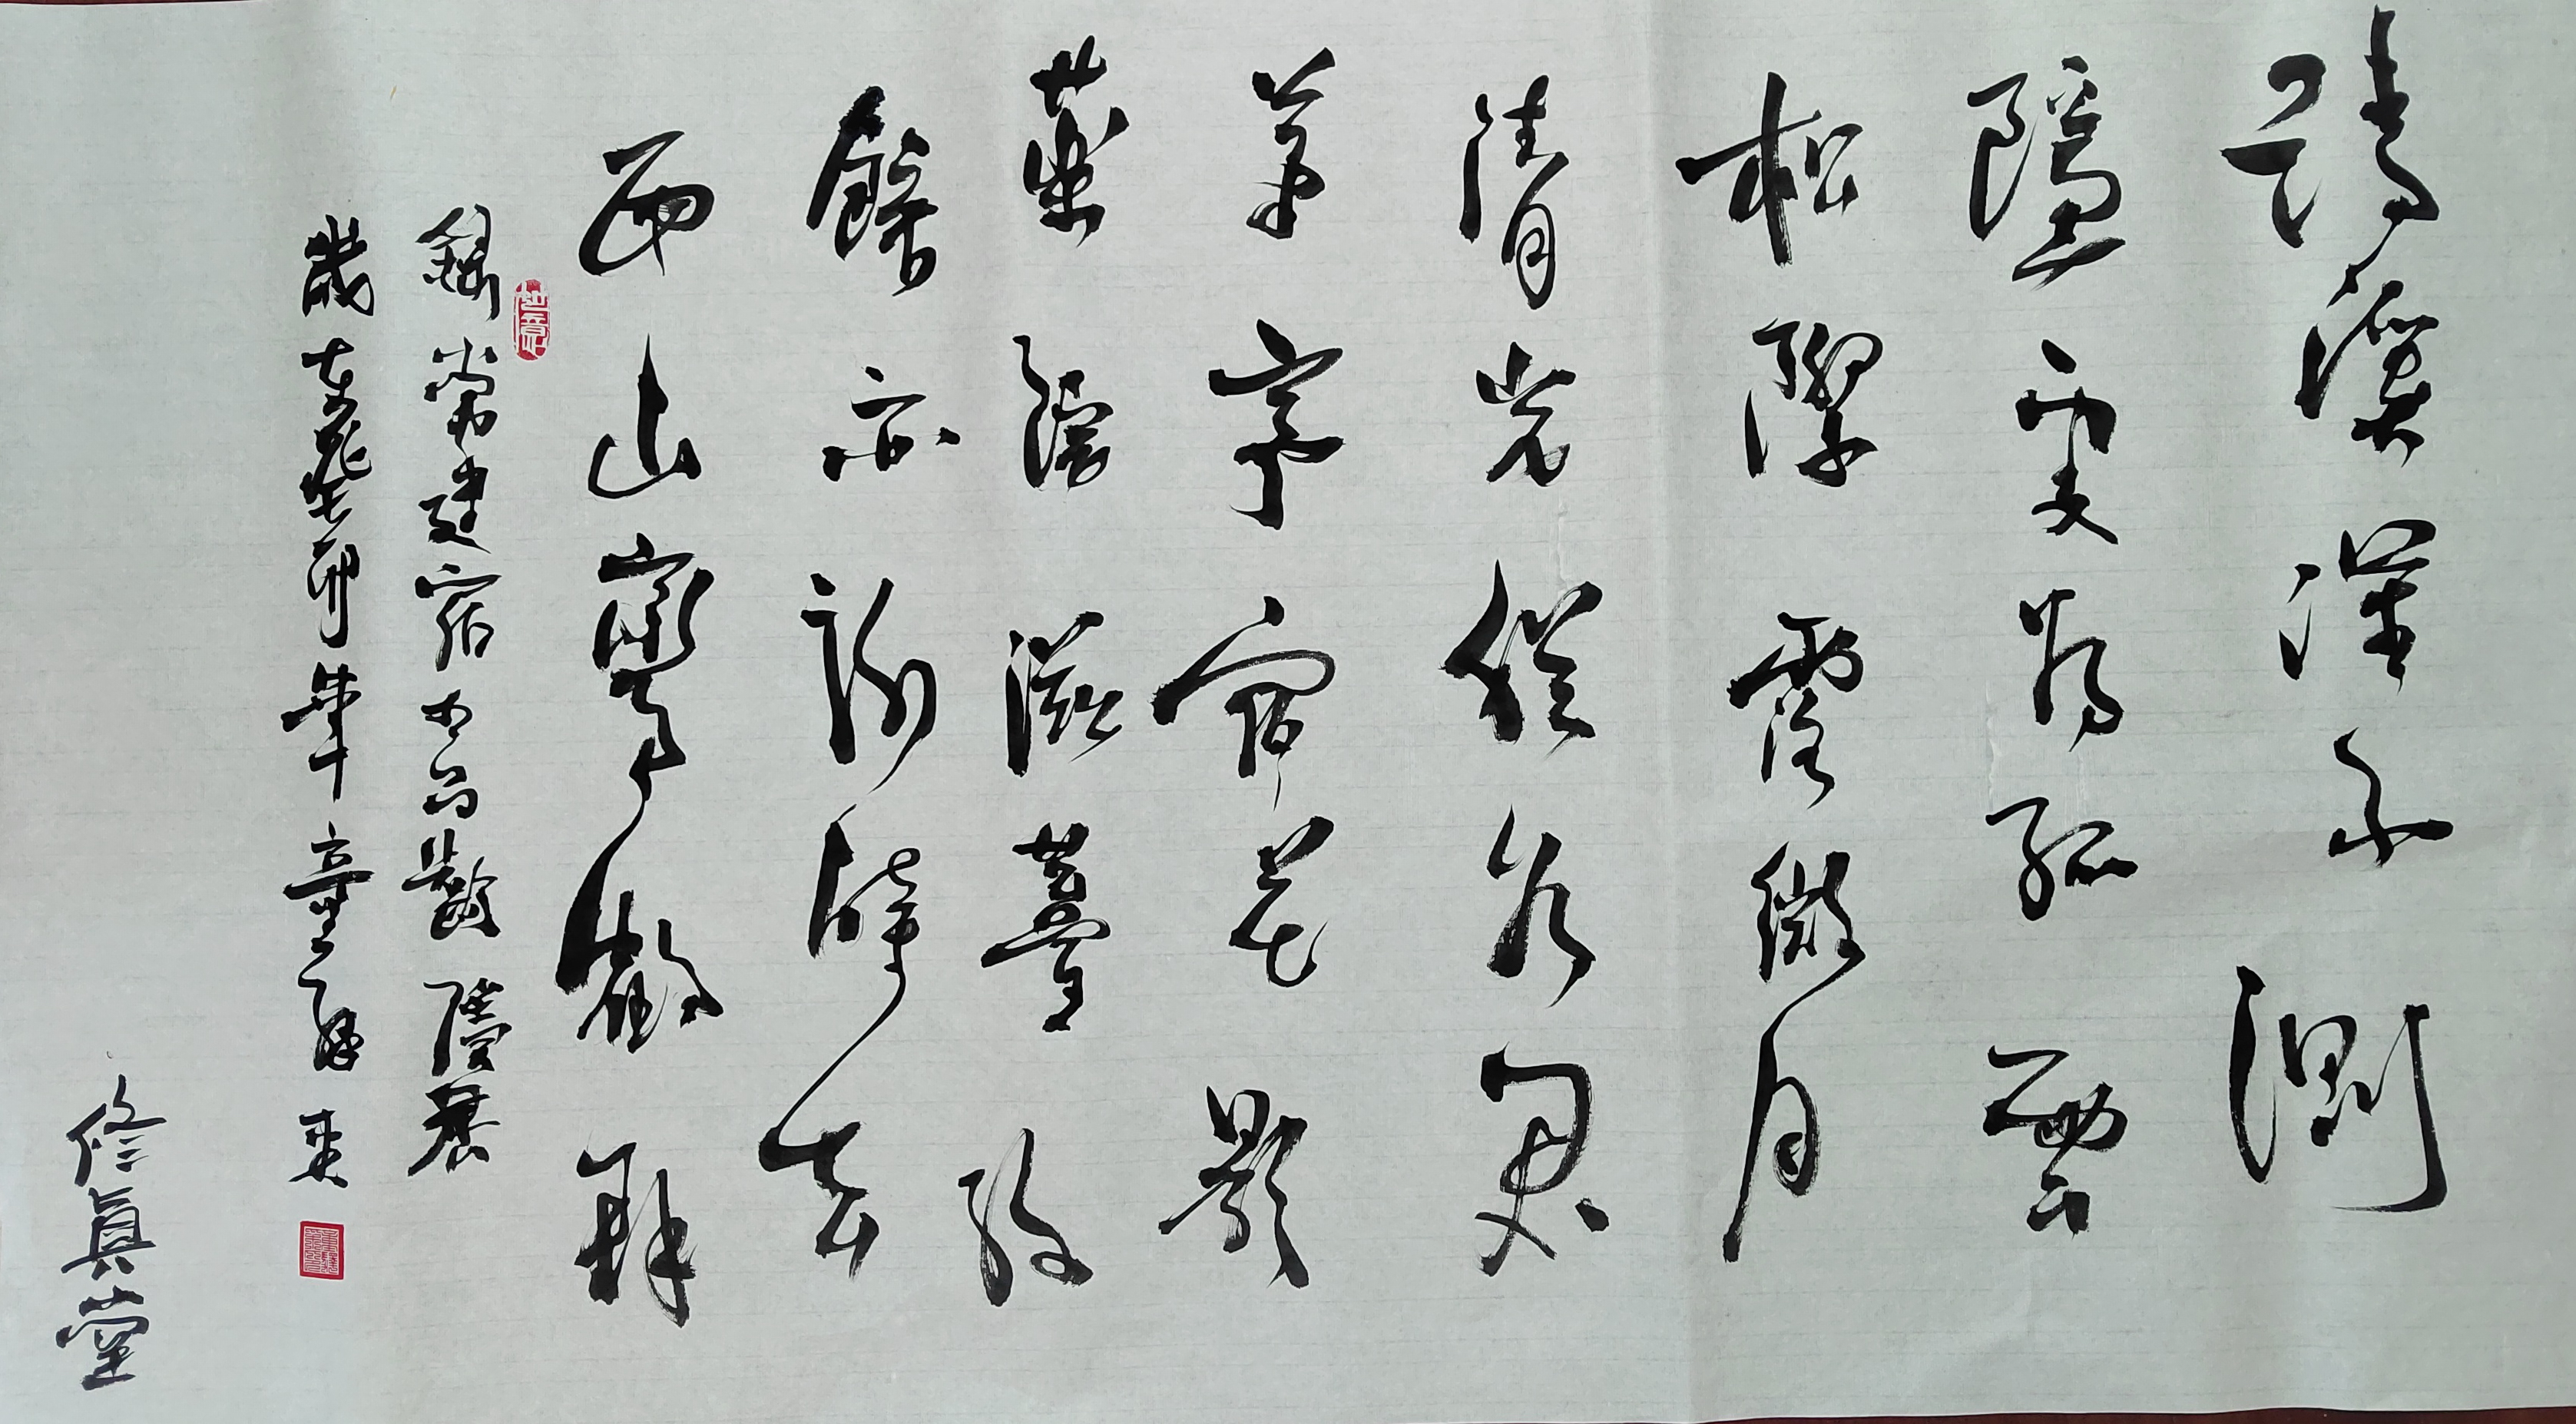 清溪深不測
隱處惟孤雲
松際露微月
清光猶為君
茅亭宿花影
藥院滋苔紋
餘亦謝時去
西山鸞鶴群
錄常建宿王昌齡隱居
歲在癸卯年
修真堂